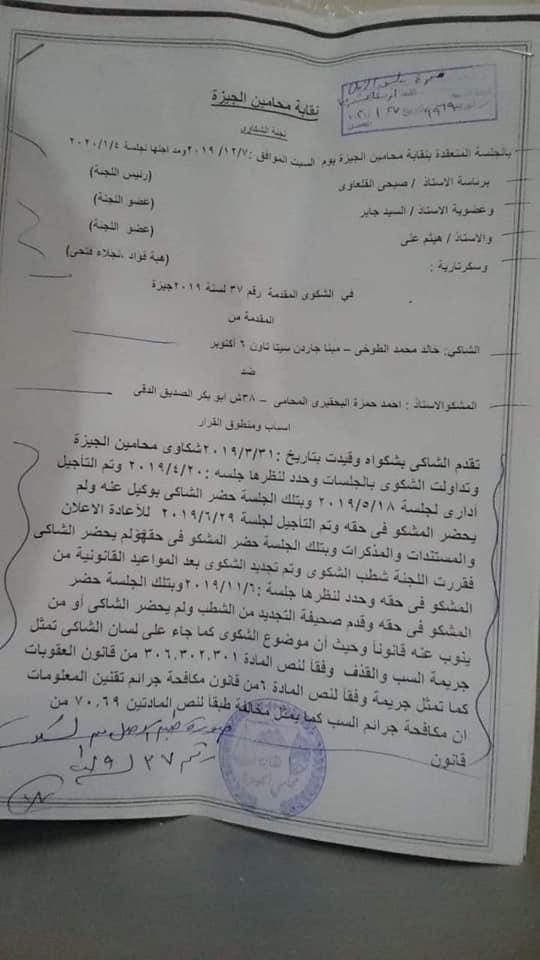 نقابة محامين الجيزة
لجنة الشكاوى
بالجلسة المنعقدة بنقابة محامين الجيزة يوم السبت الموافق :٢٠١٩/١٢/٧ ومد اجلها لجلسة ٢٠٢٠/١/٤
برئاسة الاستاذ / صبحى القلعاوى (رئيس اللجنة)
وعضوية الاستاذ / السيد جابر (عضو اللجنة)
والاستاذ / هيثم على (عضو اللجنة)
وسكرتارية : (هبة فؤاد ،نجلاء فتحى)
في الشكوى المقدمة رقم ٣٧ لسنة ٢٠١٩جيزة
المقدمة من
الشاكي: خالد محمد الطوخى – مينا جاردن سيتا تاون ٦ أكتوبر
ضد
المشكوالاستاذ : احمد حمزة البحقيرى المحامى – ٣٨ش ابو بكر الصديق الدقى
اسباب ومنطوق القرار
تقدم الشاكى بشكواه وقيدت بتاريخ :٢٠١٩/٣/٣١شكاوى محامين الجيزة
وتداولت الشكوى بالجلسات وحدد لنظرها جلسه :٢٠١٩/٤/٢٠ وتم التأجيل
أدارى لجلسة ٢٠١٩/٥/١٨ وبتلك الجلسة حضر الشاكى بوكيل عنه ولم
يحضر المشكو فى حقه وتم التأجيل لجلسة ٢٠١٩/٦/٢٩ للأعادة الاعلان
والمستندات والمذكرات وبتلك الجلسة حضر المشكو فى حقه ولم يحضر الشاكى
فقررت اللجنة شطب الشكوى وتم تجديد الشكوى بعد المواعيد القانونية من
المشكو فى حقه وحدد لنظرها جلسة :٢٠١٩/١١/٦وبتلك الجلسة حضر
المشكو فى حقه وقدم صحيفة التجديد من الشطب ولم يحضر الشاكى أو من
ينوب عنه قانوناً وحيث أن موضوع الشكوى كما جاء على لسان الشاكى تمثل
جريمة السب والقذف وفقاً لنص المادة ٣٠٦،٣٠٢،٣٠١ من قانون العقوبات
كما تمثل جريمة وفقاً لنص المادة ٦من قانون مكافحة جرائم تقنين المعلومات
ان مكافحة جرائم السب كما يمثل مخالفة طبقاً لنص المادتين ٧٠،٦٩ من
قانون
صورة طبق الاصل من
رقم ٣٧ لـ ١٩